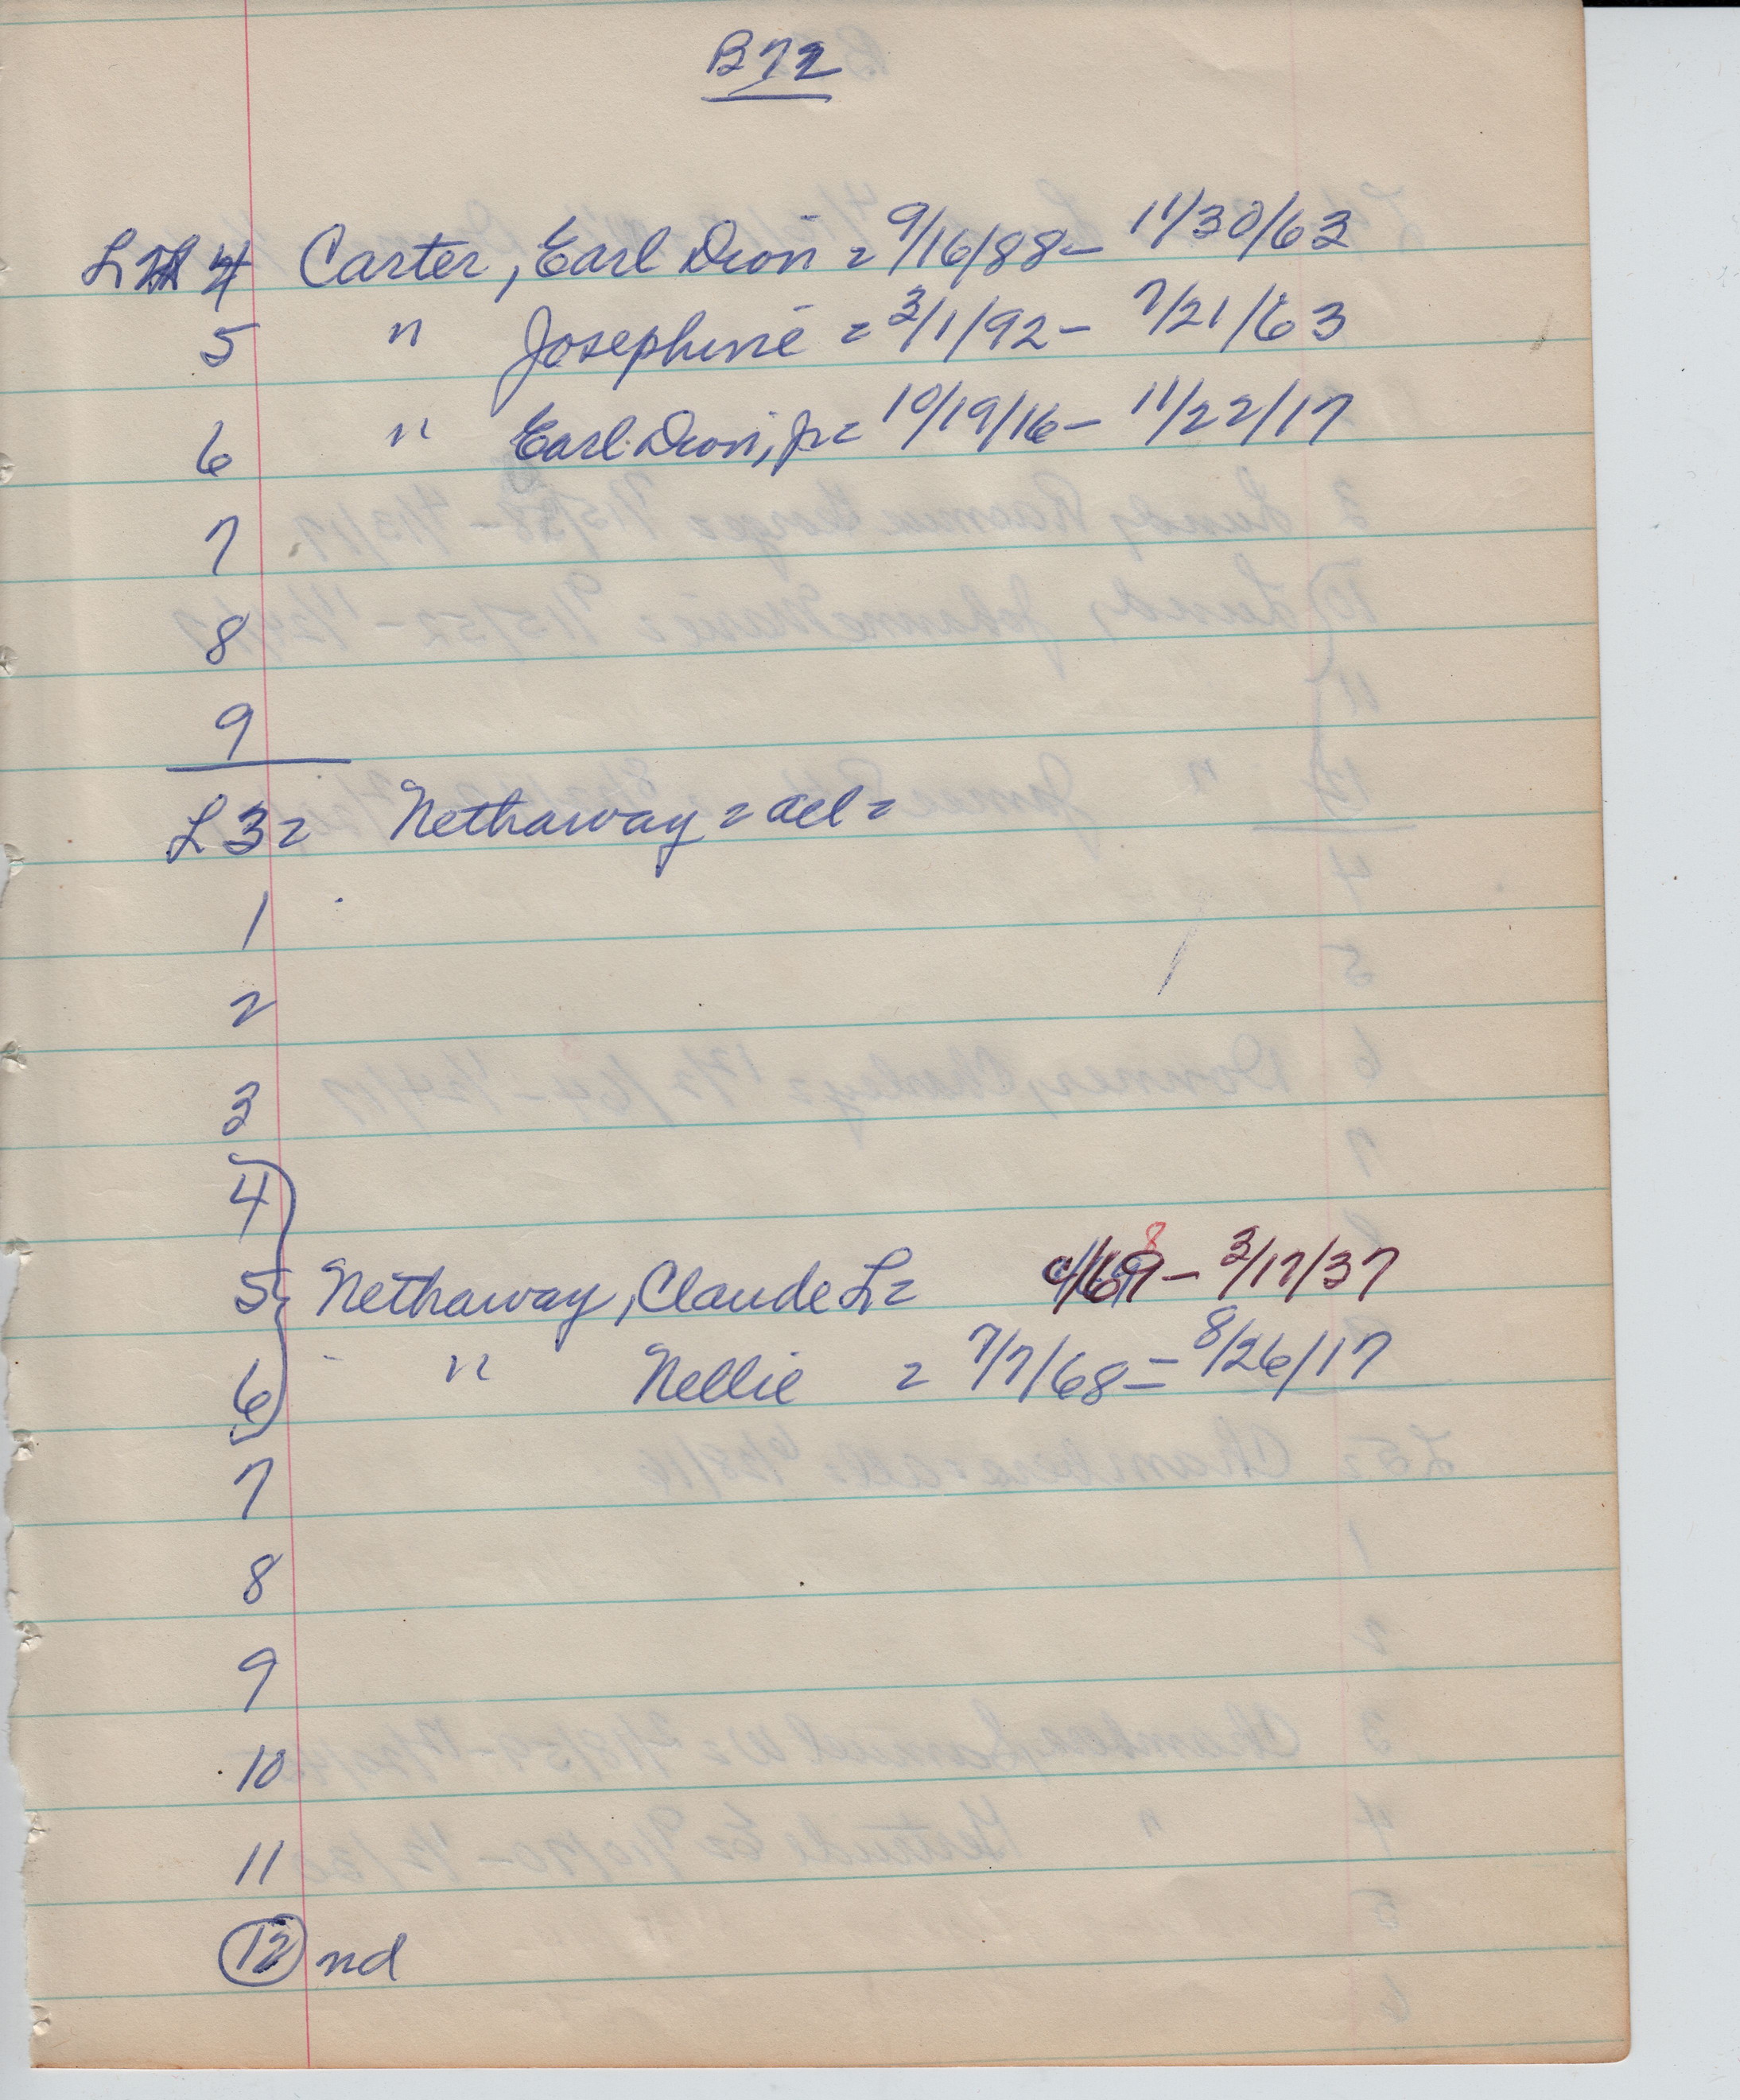 B72
4 Carter, Earl Dion = 9/16/88 - 11/30/63
5 " Josephine = 3/1/92 - 7/21/63
6 " Earl Dion, Jr = 10/19/16 - 11/22/17
7
8
9
L3 = Nethaway = ael =
1
2
3
4
8
5 Nethaway, Claude L = - 3/17/37
6 " Nellie = 7/7/68 = 8/26/17
7
8
9
10
11
12 nd